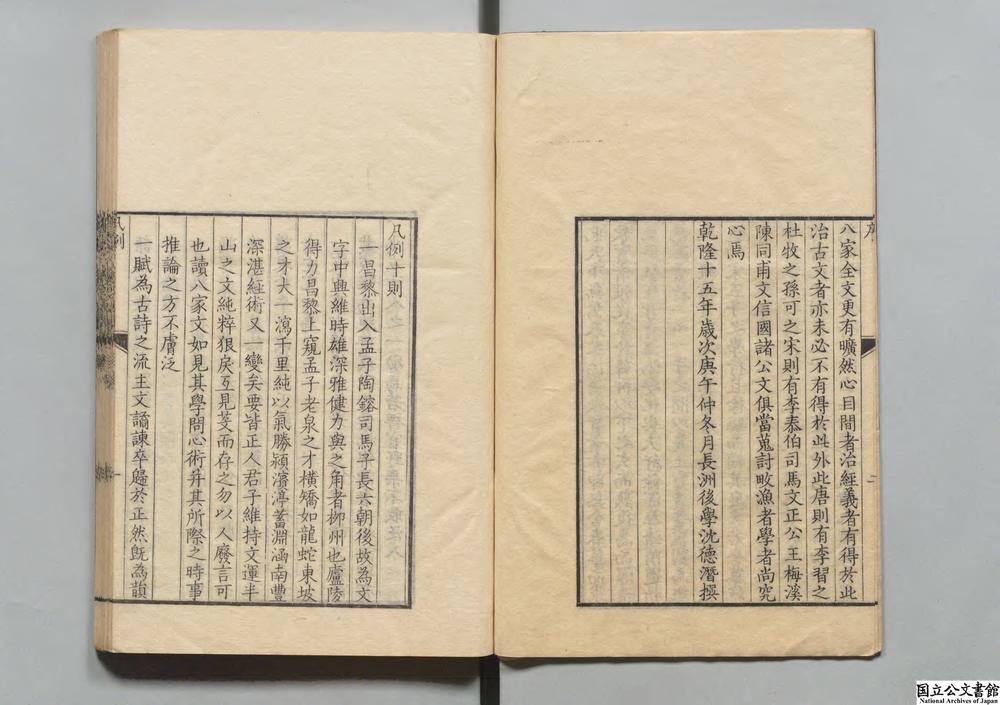 八家全文更有曠然心目間者治經義者有得於此
治古文者亦未必不有得於此外此唐則有李習之
杜牧之孫可之宋則有李泰伯司馬文正公王梅溪
陳同甫文信國諸公文俱當蒐討畋漁者學者尚究
心焉
乾隆十五年歲次庚午仲冬月長洲後學沈德潛撰
二
凡例十則
一昌黎出入孟子陶鎔司馬子長六朝後故為文
字中興維時雄深雅健力與之角者柳州也廬陵
得力昌黎上窺孟子老泉之才橫矯如龍蛇東坡
之才大一瀉千里純以氣勝潁濱渟蓄淵涵南豐
深湛經術又一變矣要皆正人君子維持文運半
山之文純粹狠戾互見芟而存之勿以人廢言可
也讀八家文如見其學問心術幷其所際之時事
推論之方不膚泛
一賦為古詩之流主文譎諫卒歸於正然既為韻
凡例
一
国立公文書館
National Archives of Japan